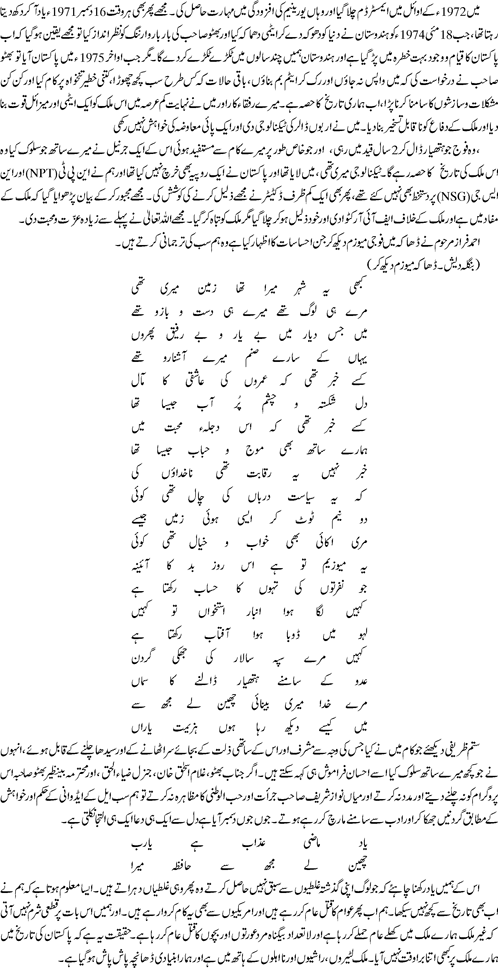 میں 1972ء کے اوائل میں ایمسٹرڈم چلا گیا اور وہاں یورینیم کی افزودگی میں مہارت حاصل کی۔ مجھے پھر بھی ہر وقت 16دسمبر1971ء یاد آ کر دکھ دیتا
رہتا تھا، جب 18مئی 1974کو ہندوستان نے دنیا کو دھوکہ دے کر ایٹمی دھماکہ کیا اور بھٹو صاحب کی بار بار وارننگ کو نظر انداز کیا تو مجھے یقین ہوگیا کہ اب
پاکستان کا قیام و وجود بہت خطرہ میں پڑ گیا ہے اور ہندوستان ہمیں چند سالوں میں ٹکڑے ٹکڑے کر دے گا۔ مگر جب اواخر 1975ء میں پاکستان آیا تو بھٹو
صاحب نے درخواست کی کہ میں واپس نہ جاؤں اور رک کر ایٹم بم بناؤں، باقی حالات کہ کس طرح سب کچھ چھوڑا، کتنی خطیر تنخواہ پر کام کیا اور کن کن
مشکلات و سازشوں کا سامنا کرنا پڑا اب ہماری تاریخ کا حصہ ہے۔ میرے رفقاء کار اور میں نے نہایت کم عرصہ میں اس ملک کو ایک ایٹمی اور میزائل قوت بنا
دیا اور ملک کے دفاع کو ناقابل تسخیر بنا دیا۔ میں نے اربوں ڈالر کی ٹیکنالوجی دی اور ایک پائی معاوضہ کی خواہش نہیں رکھی
، وہ فوج جو ہتھیار ڈال کر 2 سال قید میں رہی، اور جو خاص طور پر میرے کام سے مستفید ہوئی اس کے ایک جرنیل نے میرے ساتھ جو سلوک کیا وہ
اس ملک کی تاریخ کا حصہ رہے گا۔ ٹیکنالوجی میری تھی، میں لایا تھا اور پاکستان نے ایک روپیہ بھی خرچ نہیں کیا تھا اور ہم نے این پی ٹی (NPT) اور این
ایس جی (NSG) پر دستخط بھی نہیں کئے تھے، پھر بھی ایک کم ظرف ڈکٹیٹر نے مجھے ذلیل کرنے کی کوشش کی۔ مجھے مجبور کر کے بیان پڑھوایا گیا کہ ملک کے
مفاد میں ہے اور ملک کے خلاف ایف آئی آر کٹوا دی اور خود ذلیل ہو کر چلا گیا مگر ملک کو تباہ کر گیا۔ مجھے اللہ تعالیٰ نے پہلے سے زیادہ عزت و محبت دی۔
احمد فراز مرحوم نے ڈھاکہ میں فوجی میوزم دیکھ کر جن احساسات کا اظہار کیا ہے وہ ہم سب کی ترجمانی کرتے ہیں۔
(بنگلہ دیش۔ ڈھاکہ میوزم دیکھ کر)
کبھی یہ شہر میرا تھا زمین میری تھی
مرے ہی لوگ تھے میرے ہی دست و بازو تھے
میں جس دیار میں بے یار و بے رفیق پھروں
یہاں کے سارے صنم میرے آشنا رو تھے
کسے خبر تھی کہ عمروں کی عاشقی کا مآل
دل شکستہ و چشم پُر آب جیسا تھا
کسے خبر تھی کہ اس دجلۂ محبت میں
ہمارے ساتھ بھی موج و حباب جیسا تھا
خبر نہیں یہ رقابت تھی ناخداؤں کی
کہ یہ سیاست درباں کی چال تھی کوئی
دو نیم ٹوٹ کر ایسی ہوئی زمیں جیسے
مری اکائی بھی خواب و خیال تھی کوئی
یہ میوزیم تو ہے اس روز بد کا آئینہ
جو نفرتوں کی تہوں کا حساب رکھتا ہے
کہیں لگا ہوا انبار استخواں تو کہیں
لہو میں ڈوبا ہوا آفتاب رکھتا ہے
کہیں مرے سپہ سالار کی جھکی گردن
عدو کے سامنے ہتھیار ڈالنے کا سماں
مرے خدا میری بینائی چھین لے مجھ سے
میں کیسے دیکھ رہا ہوں ہزیمت یاراں
ستم ظریفی دیکھئے جو کام میں نے کیا جس کی وجہ سے مشرف اور اس کے ساتھی ذلت کے بجائے سر اٹھانے کے اور سیدھا چلنے کے قابل ہوئے، انہوں
نے جو کچھ میرے ساتھ سلوک کیا اسے احسان فراموش ہی کہہ سکتے ہیں۔ اگر جناب بھٹو، غلام اسحٰق خان، جنرل ضیاء الحق، اور محترمہ بینظیر بھٹو صاحبہ اس
پروگرام کو نہ چلنے دیتے اور مدد نہ کرتے اور میاں نواز شریف صاحب جرأت اور حب الوطنی کا مظاہرہ نہ کرتے تو ہم سب ایل کے ایڈوانی کے حکم اور خواہش
کے مطابق گردنیں جھکا کر اور ادب سے سامنے مارچ کر رہے ہوتے۔ جوں جوں دسمبر آیا ہے دل سے ایک ہی دعا ایک ہی التجا نکلتی ہے۔
یاد ماضی عذاب ہے یارب
چھین لے مجھ سے حافظہ میرا
اس کے ہمیں یاد رکھنا چاہئے کہ جو لوگ اپنی گذشتہ غلطیوں سے سبق نہیں حاصل کرتے وہ پھر وہی غلطیاں دہراتے ہیں۔ ایسا معلوم ہوتا ہے کہ ہم نے
ابھی تاریخ سے کچھ نہیں سیکھا۔ ہم اب پھر عوام کا قتل عام کر رہے ہیں اور امریکیوں سے بھی یہ کام کروا رہے ہیں۔ اور ہمیں اس بات پر قطعی شرم نہیں آتی
کہ غیر ملک ہمارے ملک میں کھلے عام حملے کر رہا ہے اور لاتعداد بیگناہ مرد عورتوں اور بچوں کا قتل عام کر رہا ہے۔ حقیقت یہ ہے کہ پاکستان کی تاریخ میں
ہمارے ملک پر کبھی اتنا بُرا وقت نہیں آیا۔ ملک لٹیروں، راشیوں اور نااہلوں کے ہاتھ میں ہے اور ہمارا بنیادی ڈھانچہ پاش پاش ہو گیا ہے۔